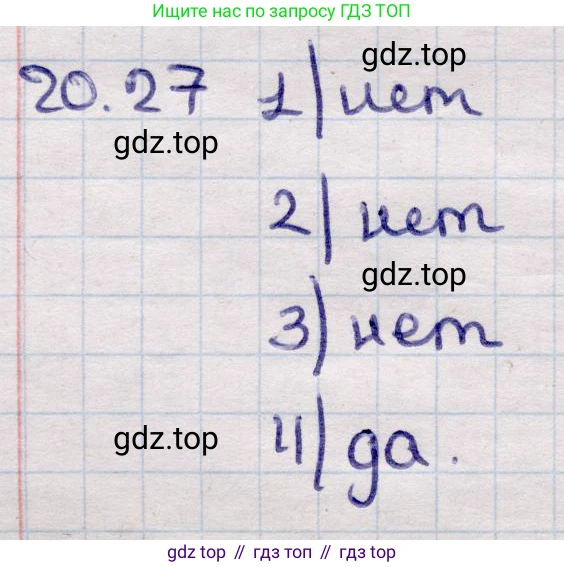 Ищите нас по запросу ГДЗ ТОП
gdz.top
20.27 1) нет
gdz.top
2) нет
gdz.top
3) нет
gdz.top 4) да.
gdz top // гдз топ // gdz.top